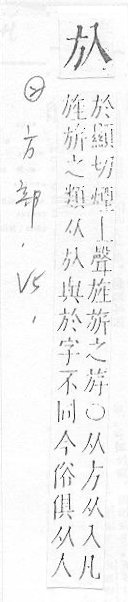 㫃
於顯切煙上聲旌旂之斿○从方从入凡
旌旂之類从㫃與於字不同今俗俱从人
方部. V5.